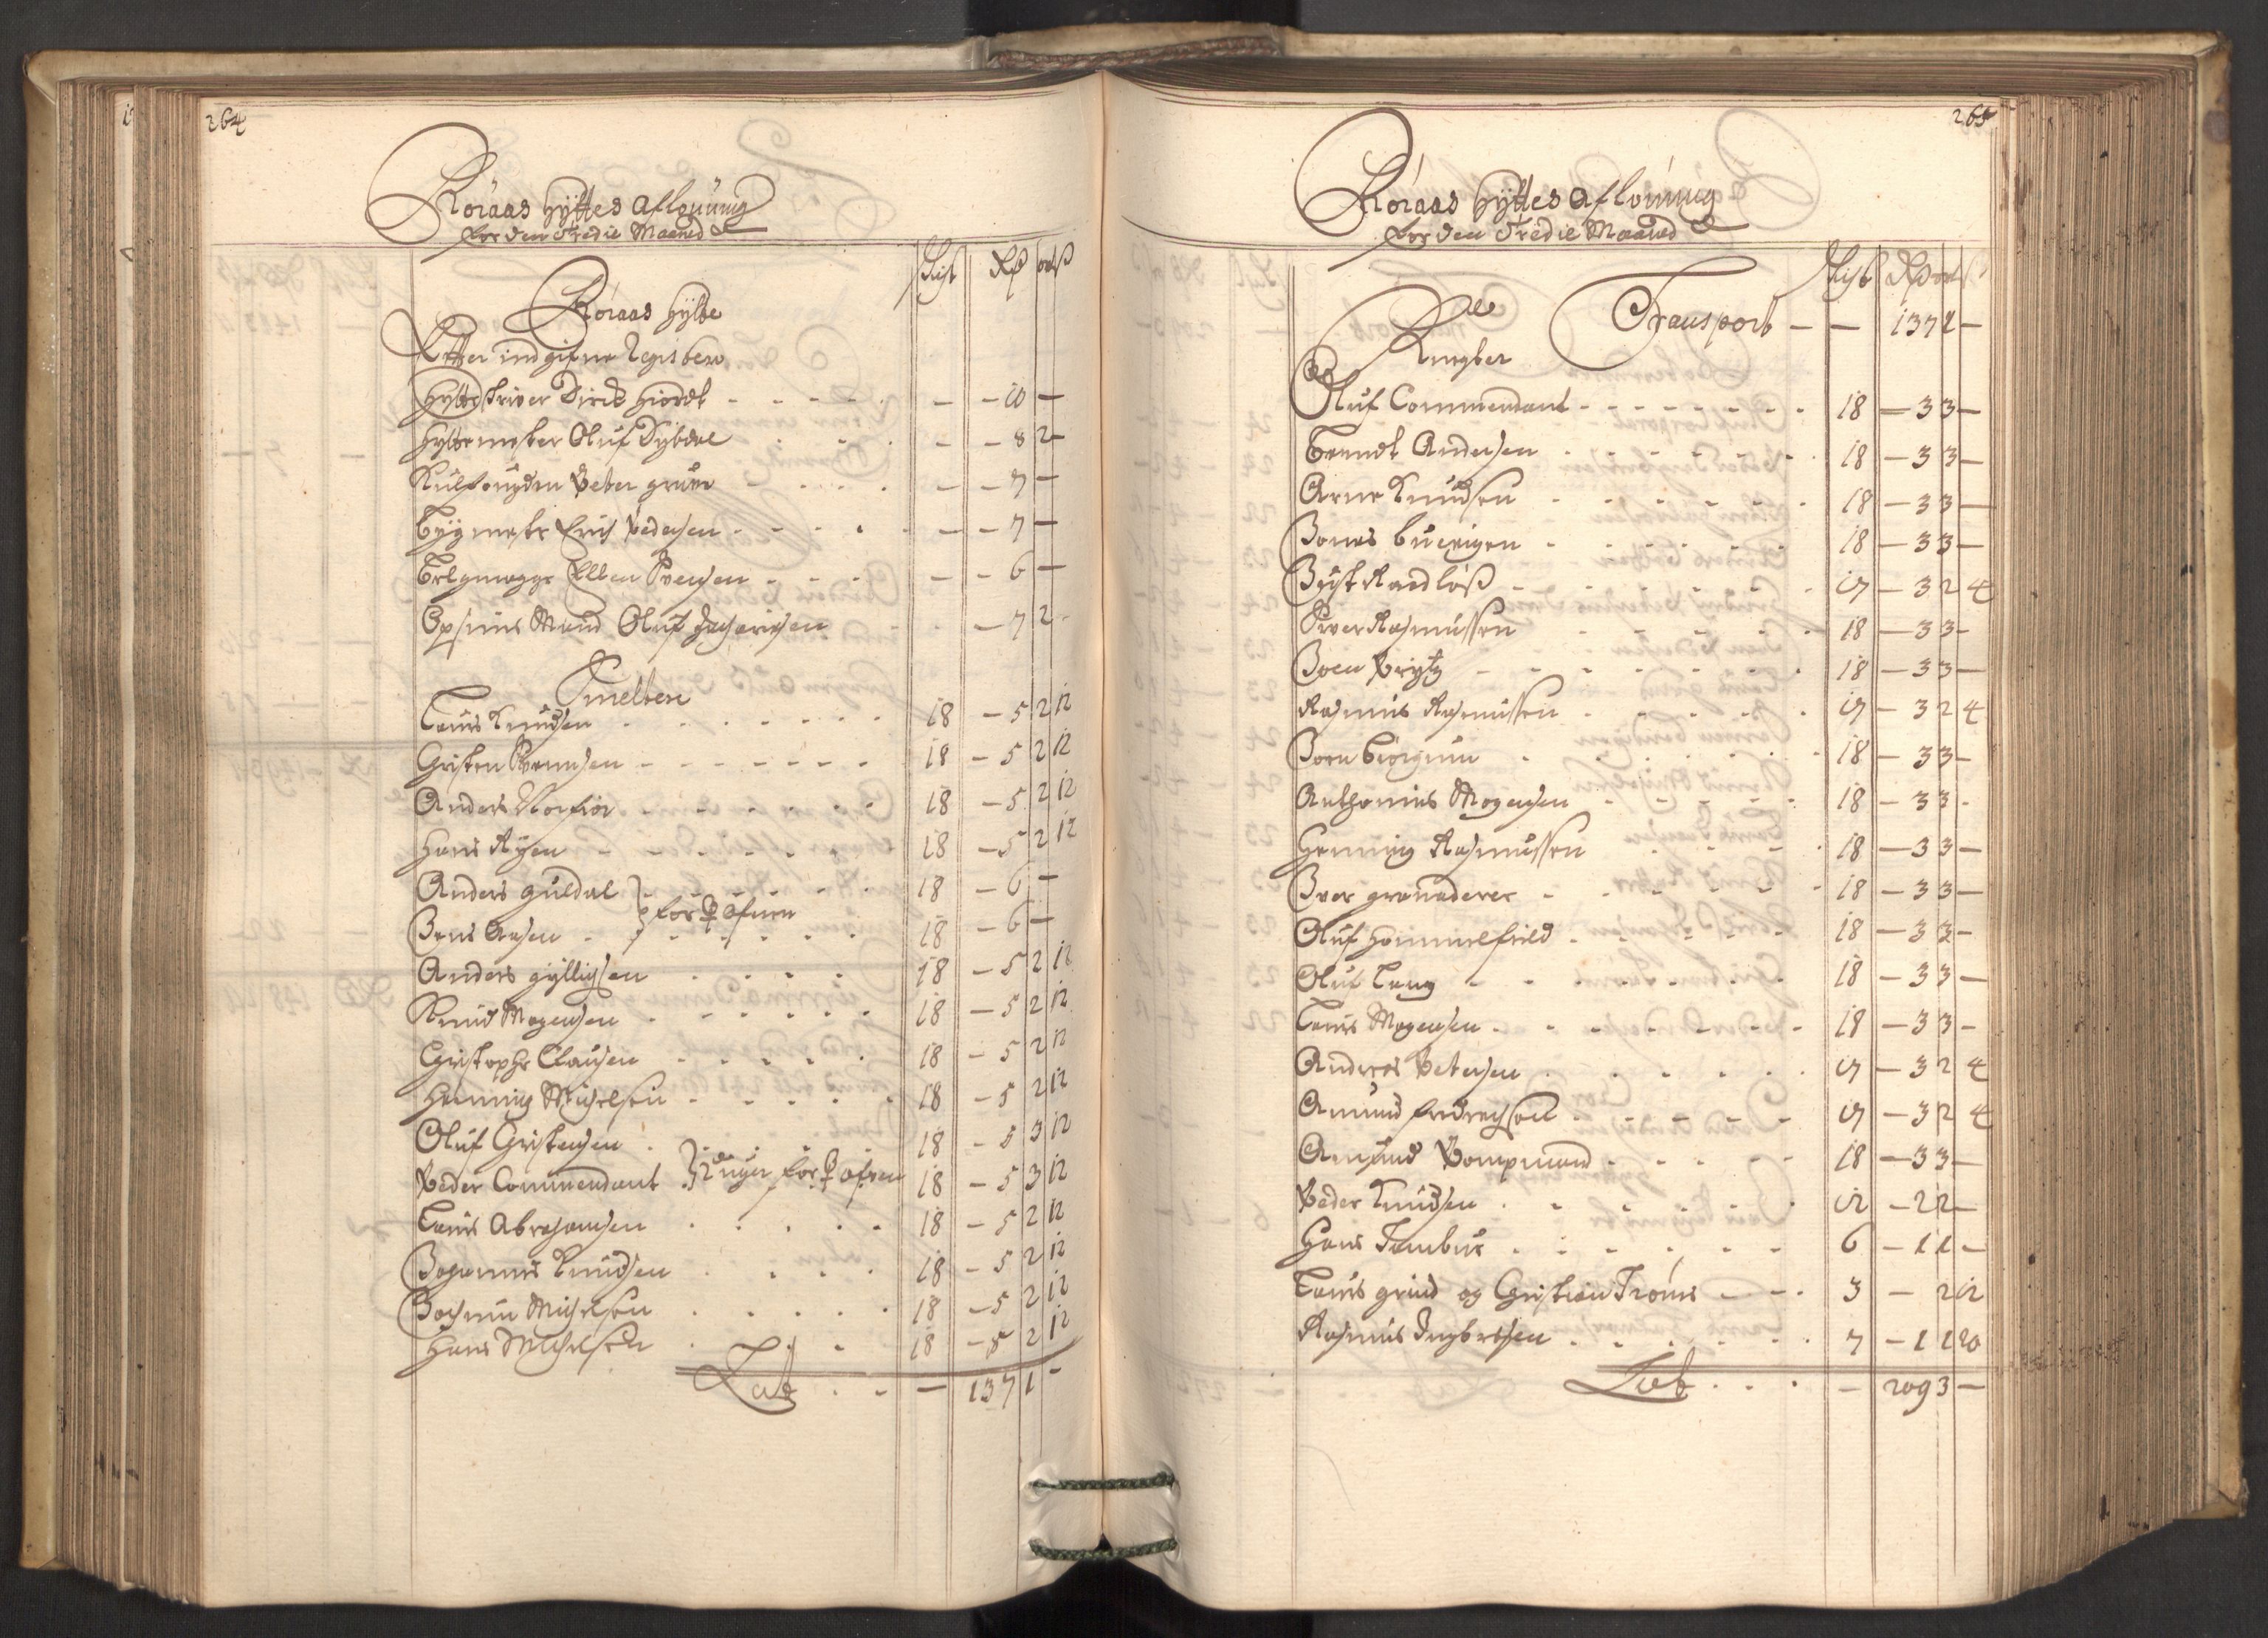 264
Röraas Hyttes Aflønning
for den Tredie Maaned
Skift Rdr ort ß
Röraas Hytte
Efter indgifne Register
Hytteskriver Dirich Hiordt - - - - - 10 -
Hyttemester Oluf Dybdal - - 8 2 -
Kulfougden Peter Gruve - - 7 -
Bygmester Erich Pedersen - - 7 -
Belgmager Ellen Svensen - - 6 -
Opsiuns Mand Oluf Zachariesen - 7 2 -
Smeltere
Lauris Knudsen 18 - 5 2 12
Christen Svendsen 18 - 5 2 12
Anders Norfior 18 - 5 2 12
Hans Ryen 18 - 5 2 12
Anders Guldal 18 - 6 -
Jens Aasen } for ♀ ofnen 18 - 6 -
Anders Gyllichsen 18 - 5 2 12
Knud Mogensen 18 - 5 2 12
Christopher Clausen 18 - 5 2 12
Henning Michelsen 18 - 5 2 12
Oluf Christensen 18 - 5 3 12
Peder Commendant } 2 uger for ♀ ofnen 18 - 5 3 12
Lauris Abrahamsen 18 - 5 2 12
Johannes Knudsen 18 - 5 2 12
Jochum Michelsen 18 - 5 2 12
Hans Michelsen 18 - 5 2 12
Lat - 137 1 -
265
Röraas Hyttes Aflønning
for den Tredie Maaned
Skift Rdr ort ß
Transport - - 137 1 -
Knegter
Oluf Commendant 18 - 3 3 -
Berndt Andersen 18 - 3 3 -
Arne Knudsen 18 - 3 3 -
Jonas 18 - 3 3 -
17 - 3 2 4
Siver Rasmussen 18 - 3 3 -
Joen 18 - 3 3 -
Rasmus Rasmussen 17 - 3 2 4
Joen Biörgum 18 - 3 3 -
Anthonius Mogensen 18 - 3 3 -
Henning Rasmussen 18 - 3 3 -
Iver Granaderer 18 - 3 3 -
Oluf Hommelfield 18 - 3 3 -
Oluf Lang 18 - 3 3 -
Lauris Mogensen 18 - 3 3 -
Anders Petersen 17 - 3 2 4
Amund Endrichsen 17 - 3 2 4
Amund Pompmand 18 - 3 3 -
Peder Knudsen 12 - 2 2 -
Hans Tambur 6 - 1 1 -
Lauris Grind og Christian Tröms 3 - 2 12
Rasmus Ingbretsen 7 - 1 1 20
Lat - 209 3 -